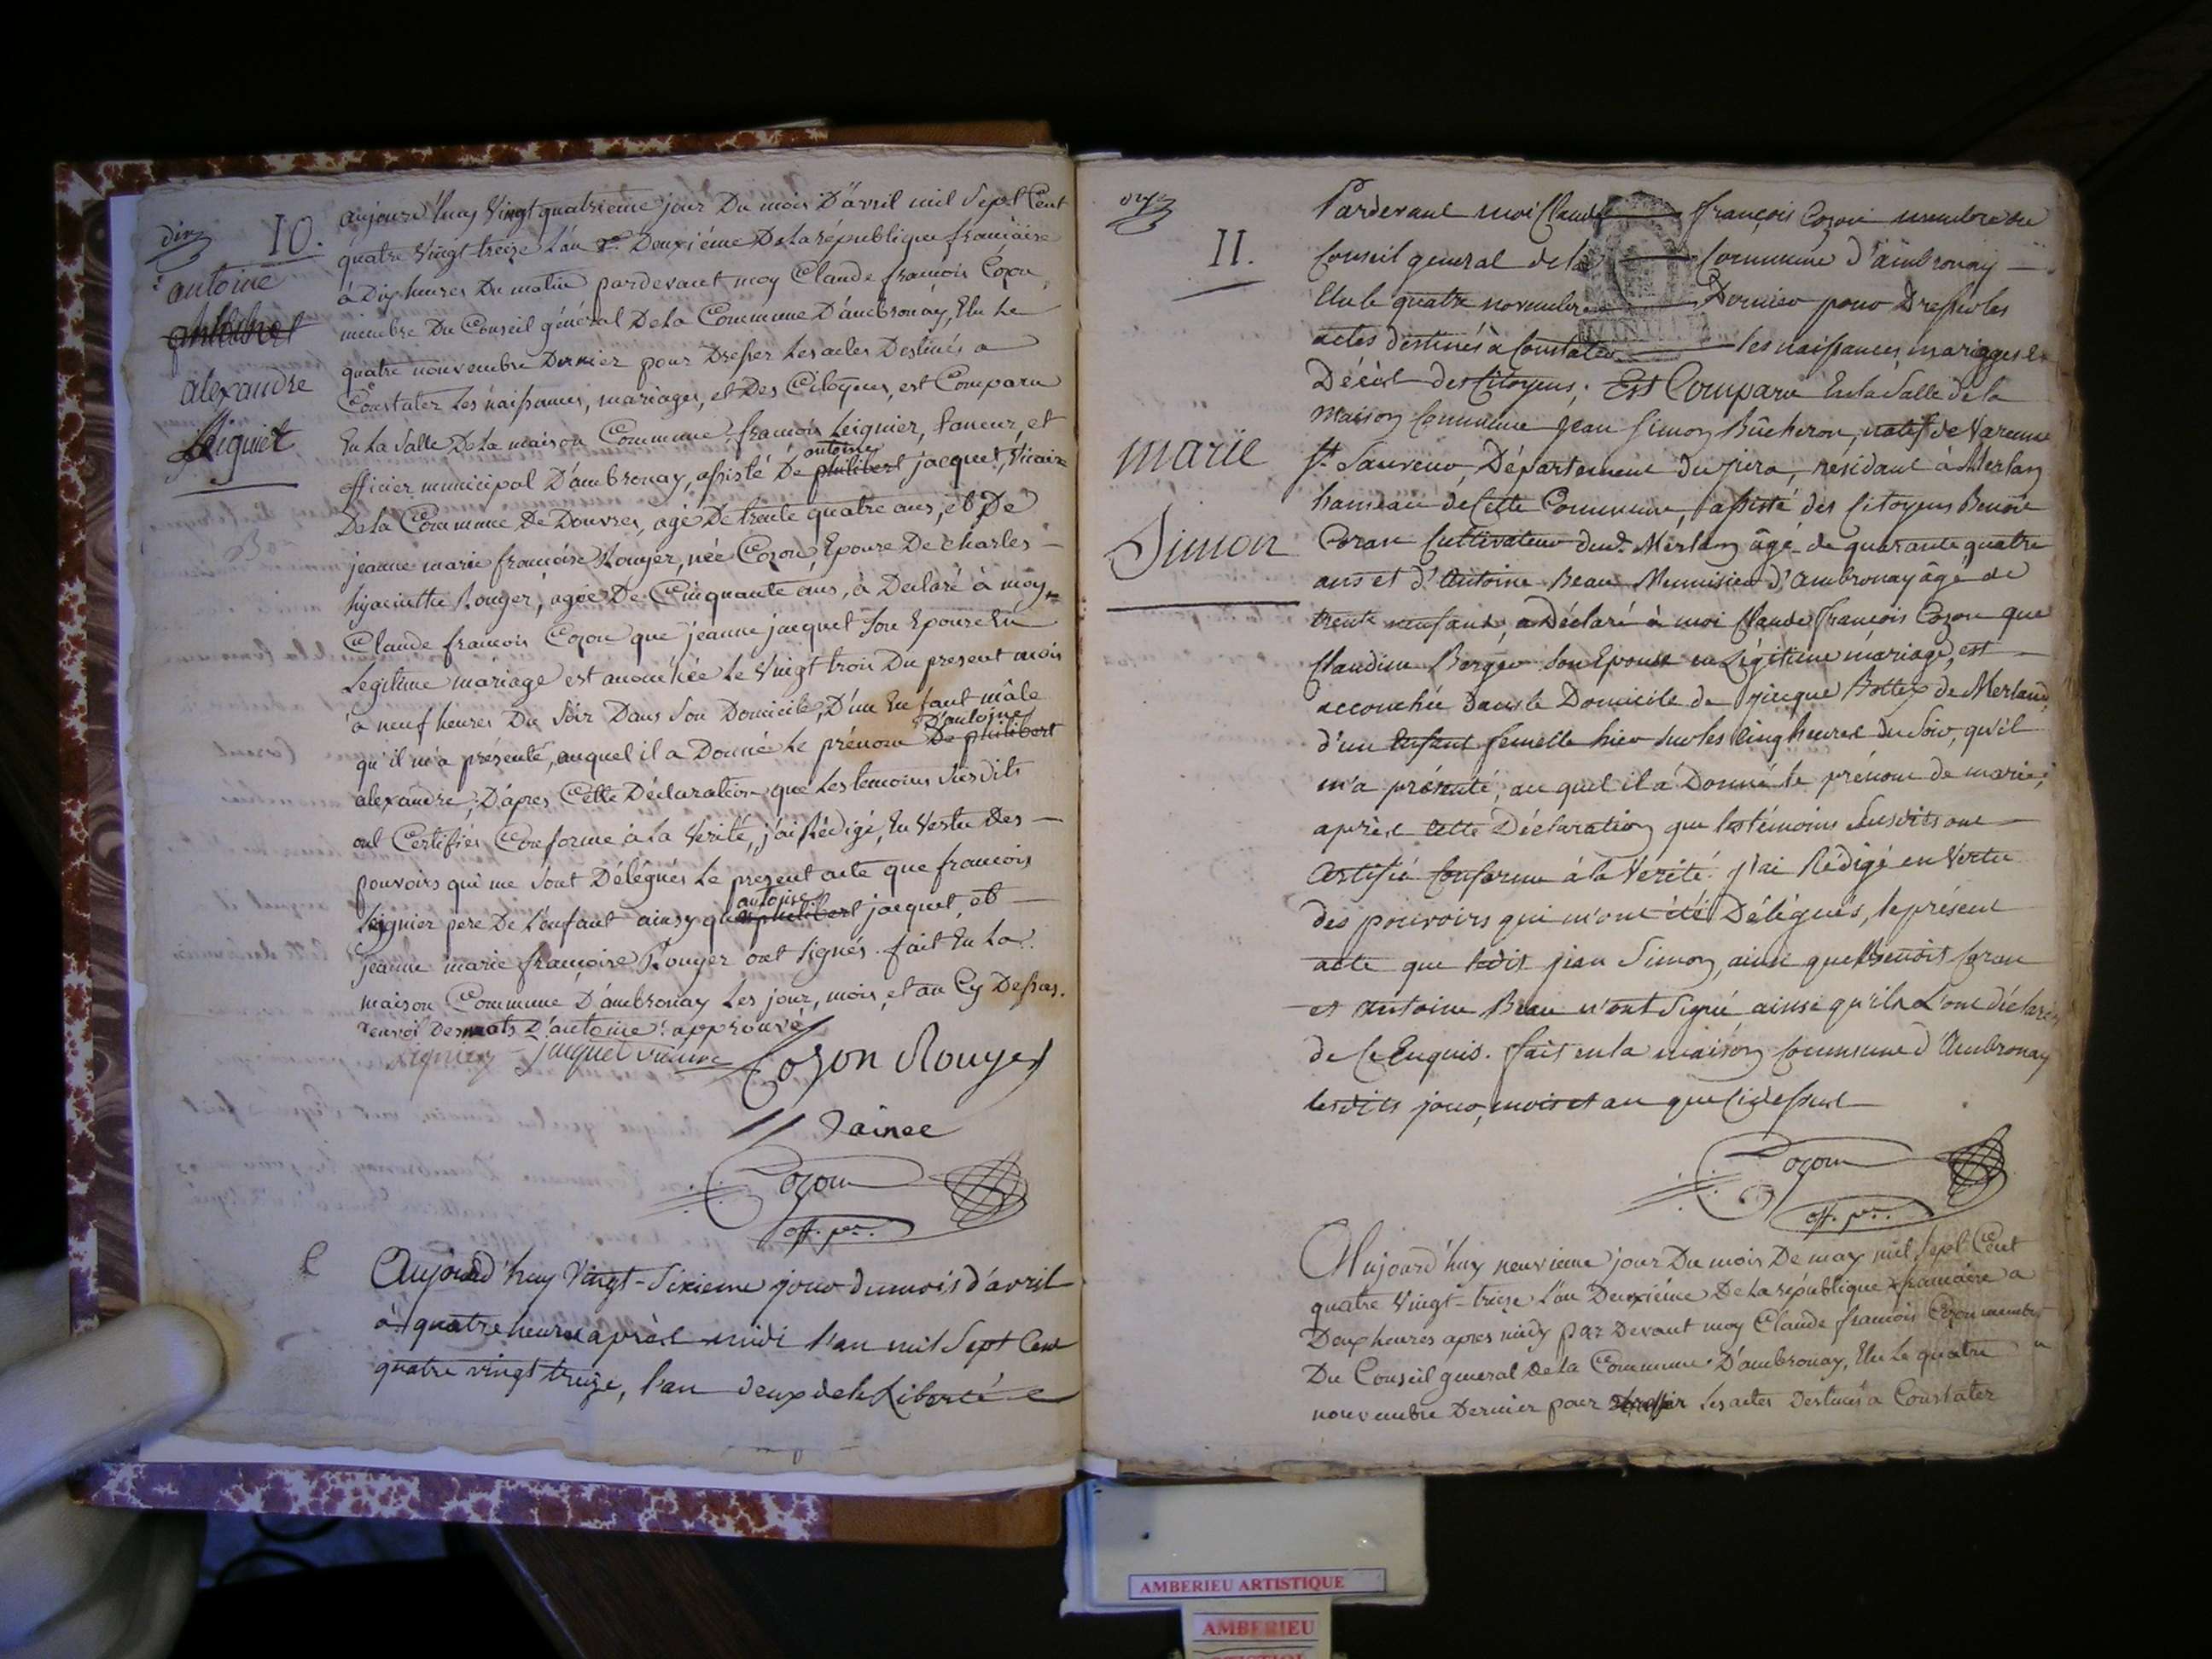 dix
10.
antoine
philibert
alexandre
Leignier
aujourd'huy Vingt quatrieme jour Du mois D'avril mil Sept Cent
quatre Vingt-treize L'an Deuxiéme De la république francaise
à Dix heures Du matin pardevant moy Claude francois Cozon
membre Du Conseil général De la Commune D'ambronay, Elu Le
quatre nouvembre Dernier pour Dresser Les actes Destinés a
Constater Les naissances, mariages, et Des Citoyens, est Comparu
En La Salle De La maison Commune, francois Leignier, taneur, et
antoine
officier municipal D'ambronay, assisté De philibert jacquet, Vicaire
De la Commune De Douvres, agé De trente quatre ans, et De
jeanne marie francoise Rouyer, née Cozon, Epouse De charles
hyacinthe Rouyer, agée De Cinquante ans, à Declaré à moy
Claude francois Cozon que jeanne jacquet Son Epouse En
Legitime mariage est acouchée Le Vingt trois Du present mois
à neuf heures Du Soir Dans Son Domicile, D'un Enfant mâle
D'antoine
qu'il m'a présenté, auquel il a Donné Le prénom De philibert
alexandre; D'apres Cette Déclaration que Les temoins Susdits
ont Certifiés Conforme à La Verité, j'ai Rédigé, En Vertu Des
pouvoirs qui me Sont Délégués Le present acte que francois
antoine
Leignier pere De L'enfant ainsy que philibert jacquet, et
jeanne marie françoise Rouyer ont signés. fait En La
maison Commune D'ambronay Les jour, mois, et an Cy Dessus.
renvoi Des mots D'antoine: approuvé
Leignier jacquet vicaire Cozon Rouyer
L'ainee
Cozon
off. pr.
Aujourd'huy Vingt-Sixieme jour du mois d'avril
à quatre heures après midi l'an mil Sept Cent
quatre vingt treize, l'an deux de la Liberté
onze
11.
marie
Simon
Pardevant moi Claude françois Cozon membre du
Conseil general de la Commune d'ambronay
Elu le quatre novembre Dernier pour Dresser les
actes destinés à Constater les naissances mariages et
Décès des Citoyens; Est Comparu En la Salle de la
maison Commune Jean Simon Bûcheron, natif de Varenne
St. Sauveur, Département du jura, résidant à Merland
hameau de Cette Commune, assisté des Citoyens Benoit
Coran Cultivateur dud. Merland âgé de quarante quatre
ans et d'Antoine Beau Menuisier d'Ambronay âgé de
trente neuf ans, a Déclaré à moi Claude François Cozon que
Claudine Berger Son Epouse en Légitime mariage, est
accouchée dans le Domicile de Jacque Bottex de Merland,
d'un Enfant femelle hier sur les cinq heures du Soir, qu'il
m'a présenté, au quel il a Donné le prénom de marie;
après cette Déclaration que les témoins Susdits ont
Certifié Conforme à la Vérité. J'ai Rédigé en Vertu
des pouvoirs qui m'ont été Délégués, le présent
acte que ledit jean Simon, ainsi que Benoit Coran
et Antoine Beau n'ont Signé ainsi qu'ils L'ont déclaré
de ce Enquis. fait en la maison Commune d'Ambronay
lesdits jour, mois et an que ci dessus
Cozon
off. pr.
Aujourd'huy neuvieme jour Du mois De may mil Sept Cent
quatre Vingt-treize L'an Deuxiéme De La république francaise a
Deux heures apres midy par Devant moy Claude francois Cozon membre
Du Conseil general De la Commune D'ambronay, Elu Le quatre
nouvembre Dernier pour Dresser Les actes Destinés a Constater
AMBERIEU ARTISTIQUE
AMBERIEU